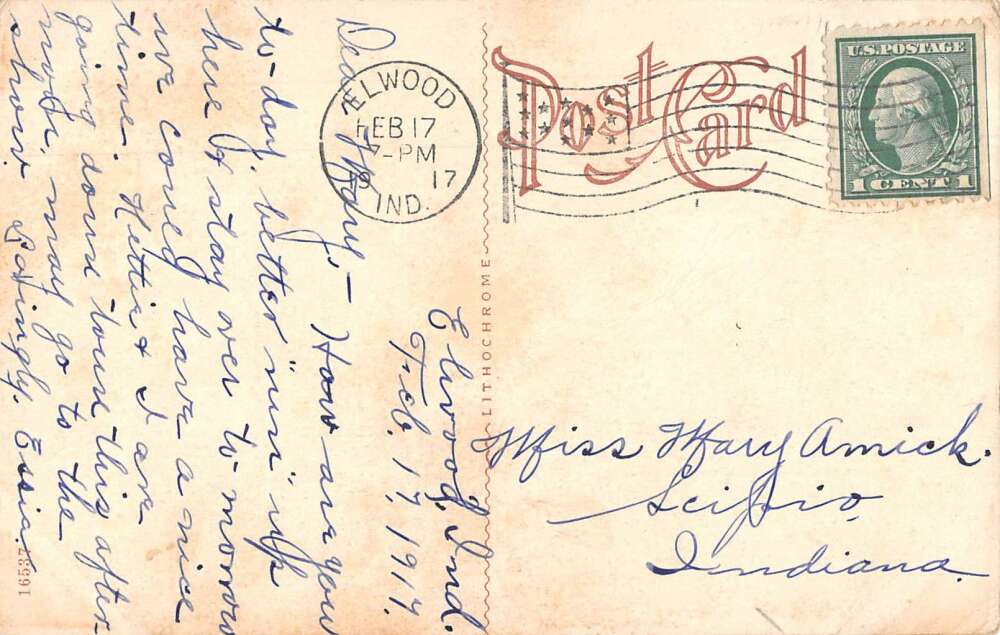 Elwood, Ind.
Feb. 17, 1917.
Dear Mary,- How are you
to-day, better "nin" up
here & stay over to-morrow
we could have a nice
time. Hettie & I are
going down town this after-
noon, may go to the
show. Lovingly, Essie.
16537
LITHOCHROME
ELWOOD
FEB 17
7-PM
17
IND.
Post Card
U.S. POSTAGE
1 CENT 1
Miss Mary Amick.
Scipio,
Indiana.